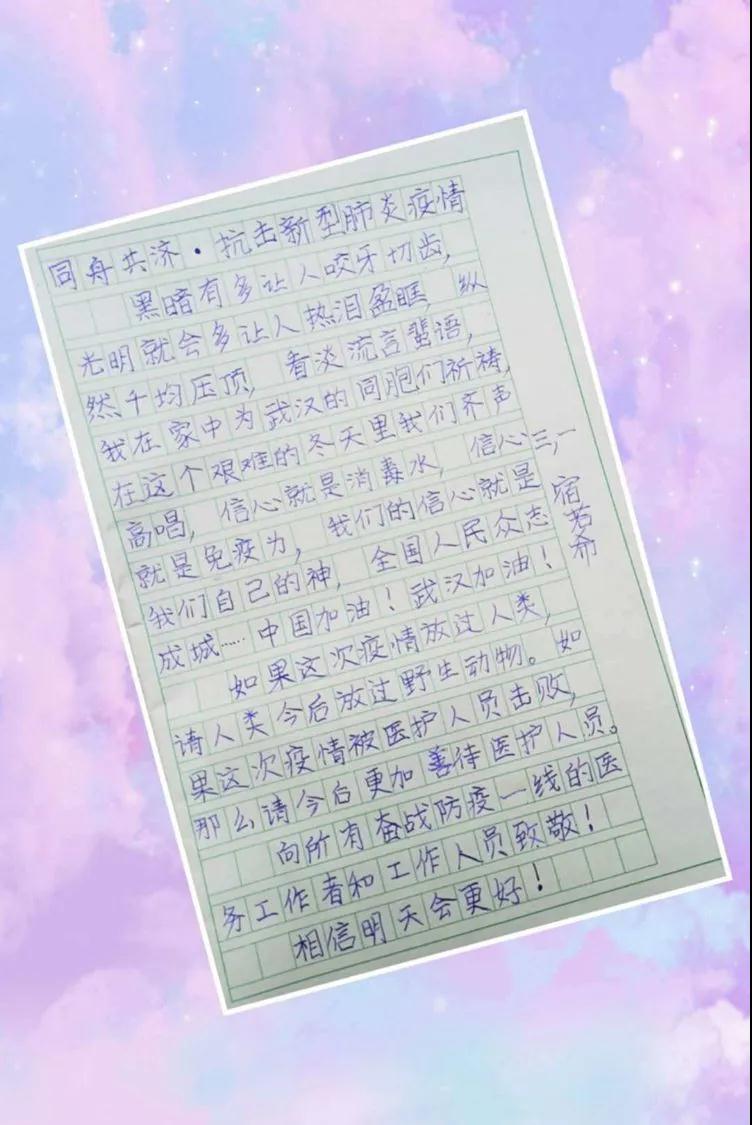 同舟共济·抗击新型肺炎疫情
黑暗有多让人咬牙切齿,
光明就会多让人热泪盈眶,纵
然千均压顶,看淡流言蜚语,
我在家中为武汉的同胞们祈祷,
在这个艰难的冬天里我们齐声
高唱,信心就是消毒水,信心
就是免疫为,我们的信心就是
我们自己的神,全国人民众志
成城……中国加油!武汉加油!
如果这次疫情放过人类,
请人类今后放过野生动物。如
果这次疫情被医护人员击败,
那么请今后更加善待医护人员。
向所有奋战防疫一线的医
务工作者和工作人员致敬!
相信明天会更好!
三,一
宿若希